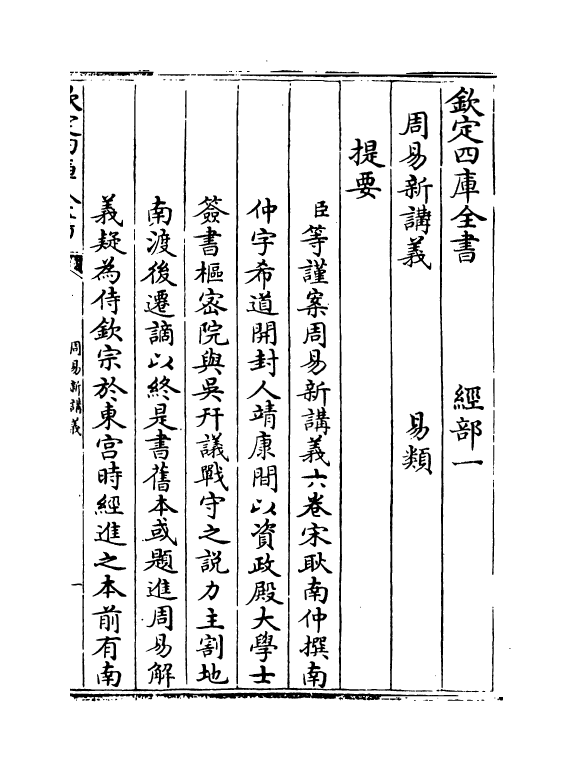 欽定四庫全書　經部一
周易新講義　易類
提要
臣等謹案周易新講義六卷宋耿南仲撰南
仲字希道開封人靖康間以資政殿大學士
簽書樞密院與吳幵議戰守之説力主割地
南渡後遷謫以終是書舊本或題進周易解
義疑為侍欽宗於東宮時經進之本前有南
周易新講義
一